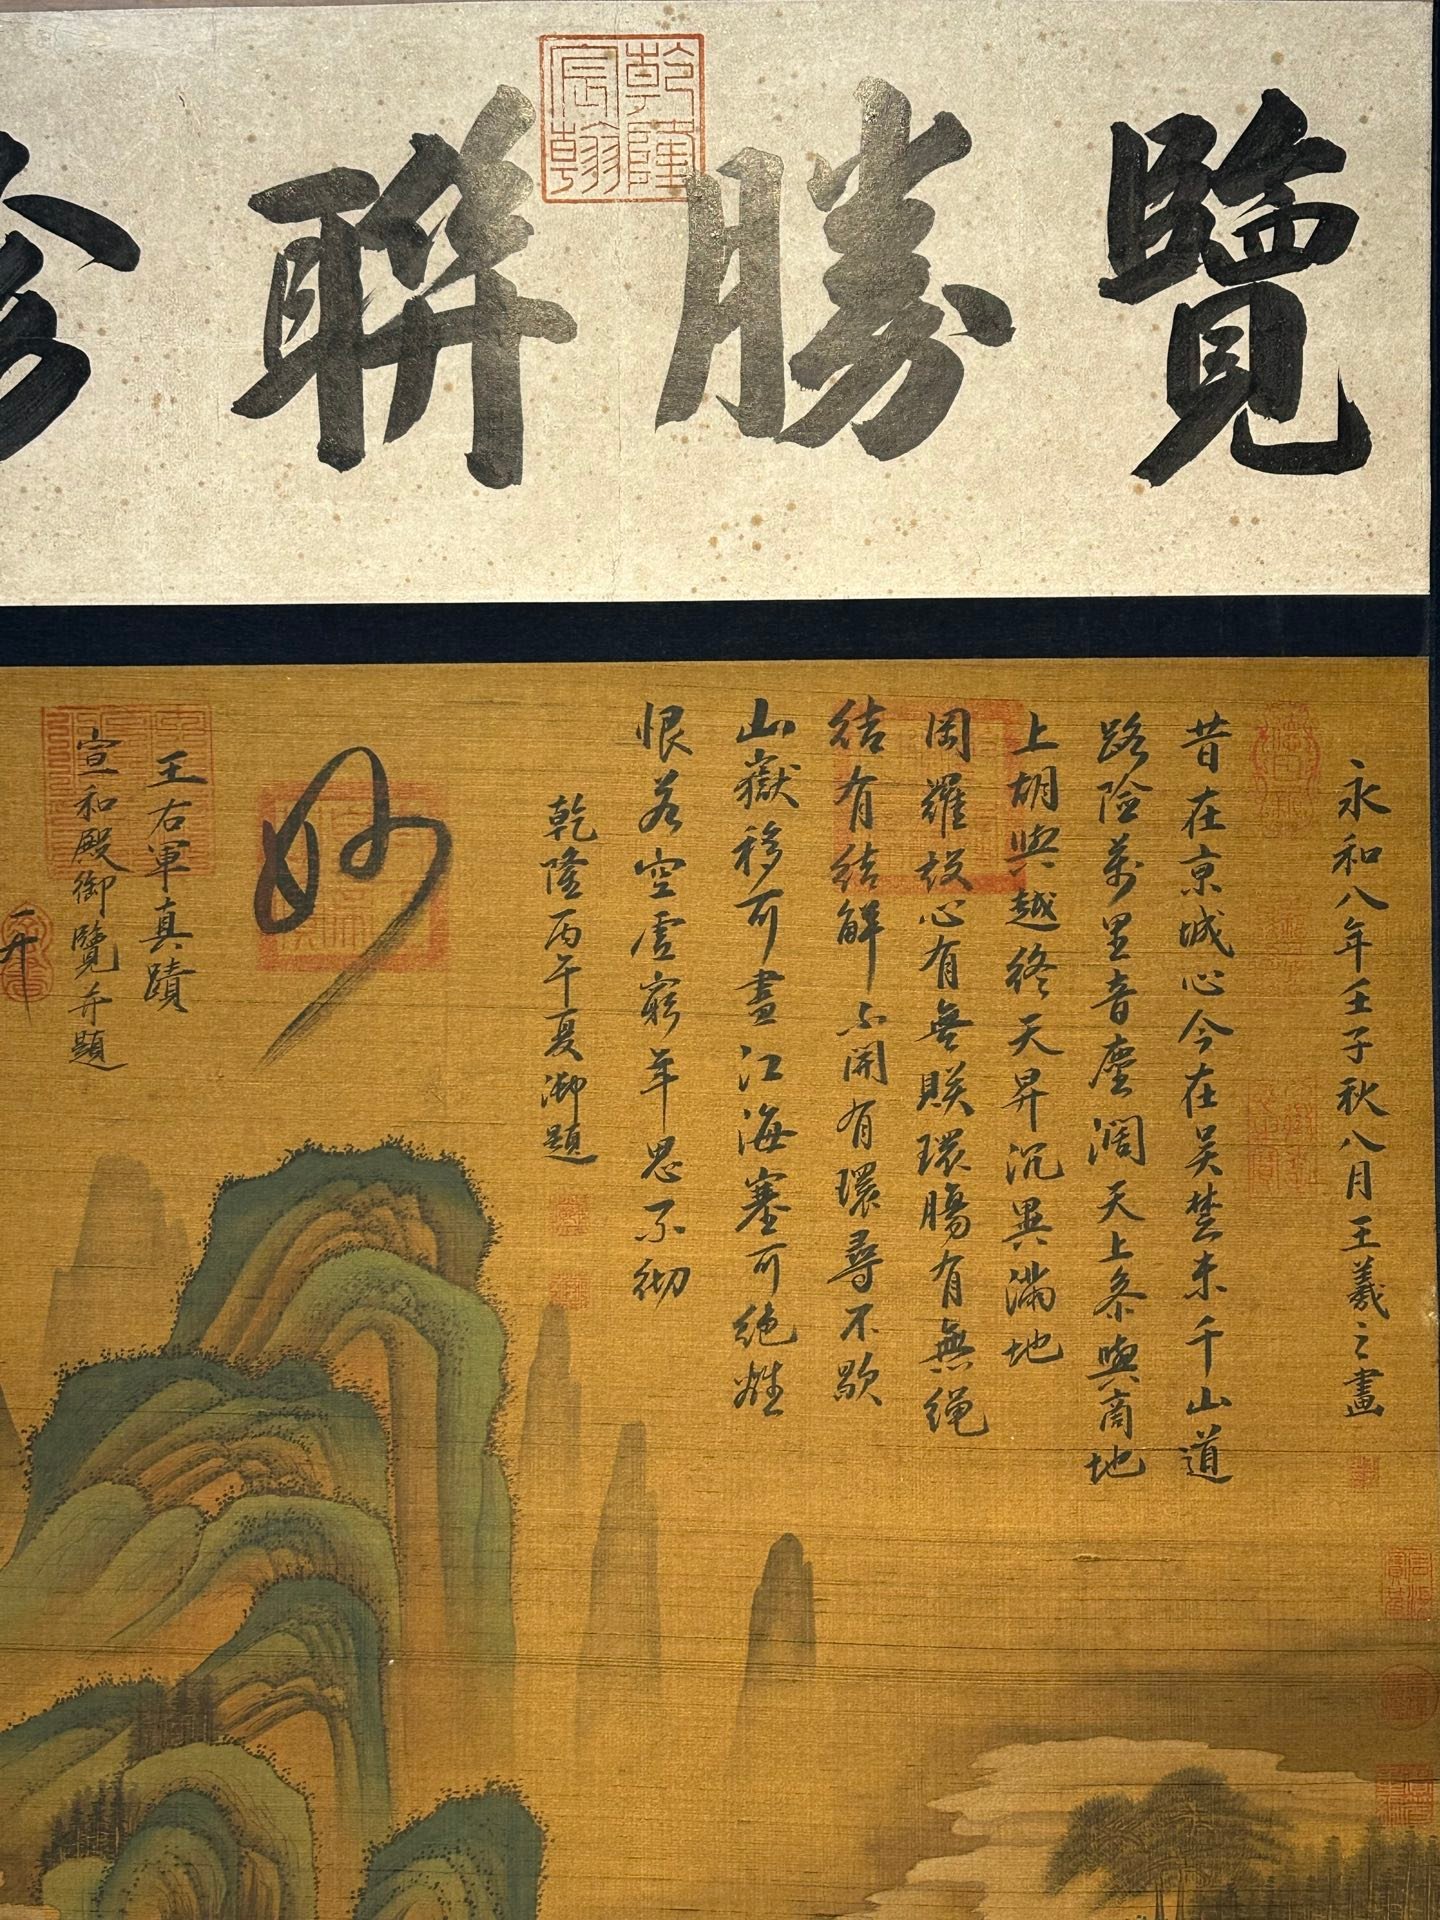 覽勝聯
乾隆宸翰
永和八年壬子秋八月王羲之畫
昔在京城心今在吴楚末千山道
路險萬里音塵濶天上參與商地
上胡與越終天昇沉異滿地
罔羅設心有無朕環腸有無繩
结有结解不開有環尋不歇
山嶽移可盡江海塞可絶離
恨若空虚窮年思不彻
乾隆丙午夏御題
妙
王右軍真蹟
宣和殿御覽并題